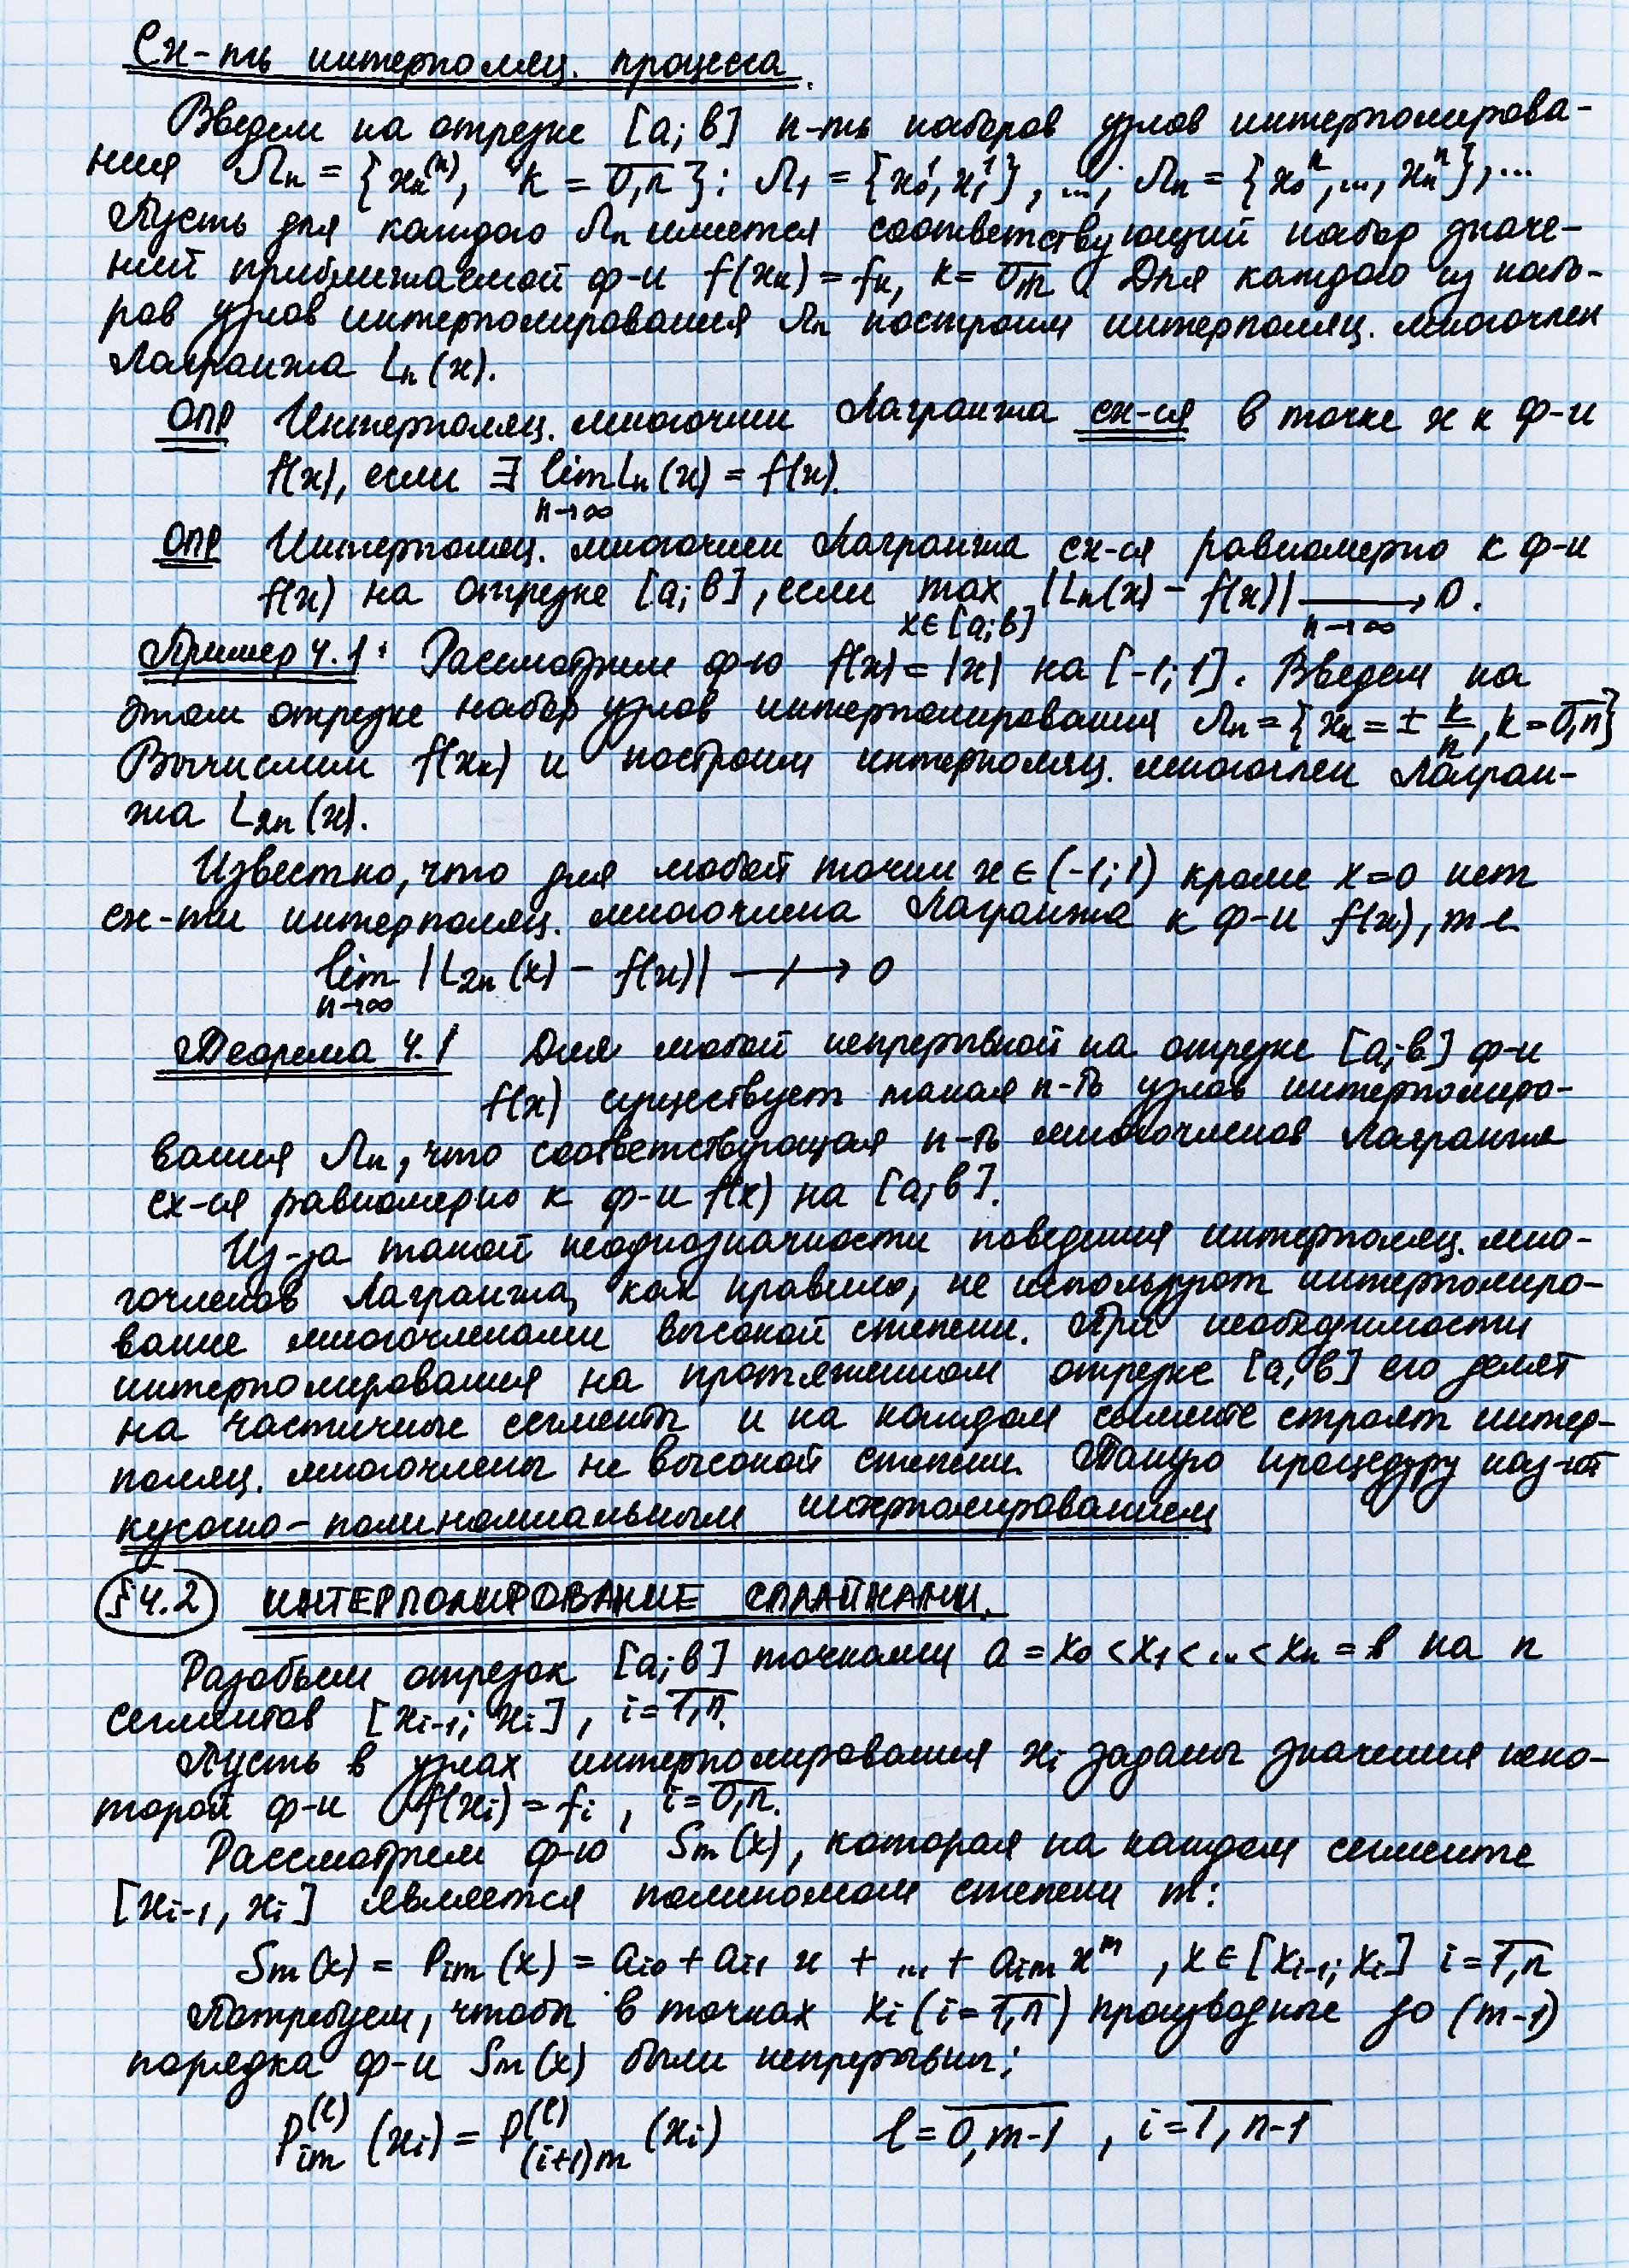 Сх-ть интерполяц. процесса.
Введем на отрезке [a; b] п-ть наборов узлов интерполирова-
ния Λₙ = {xₖ⁽ⁿ⁾, k = 0,n}: Λ₁ = {x₀¹, x₁¹}, ...; Λₙ = {x₀ⁿ, ..., xₙⁿ}, ...
Пусть для каждого Λₙ имеется соответствующий набор значе-
ний приближаемой ф-и f(xₖ) = fₖ, k = 0,n. Для каждого из набо-
ров узлов интерполирования Λₙ построим интерполяц. многочлен
Лагранжа Lₙ(x).
ОПР Интерполяц. многочлен Лагранжа сх-ся в точке x к ф-и
f(x), если ∃ lim Lₙ(x) = f(x).
n→∞
ОПР Интерполяц. многочлен Лагранжа сх-ся равномерно к ф-и
f(x) на отрезке [a; b], если max |Lₙ(x) − f(x)| → 0.
x∈[a;b] n→∞
Пример 4.1: Рассмотрим ф-ю f(x) = |x| на [-1; 1]. Введем на
этом отрезке набор узлов интерполирования Λₙ = {xₖ = ± k/n, k = 0,n}
Вычислим f(xₖ) и построим интерполяц. многочлен Лагран-
жа L₂ₙ(x).
Известно, что для любой точки x ∈ (-1; 1) кроме x=0 нет
сх-ти интерполяц. многочлена Лагранжа к ф-и f(x), т-е
lim |L₂ₙ(x) − f(x)| ↛ 0
n→∞
Теорема 4.1 Для любой непрерывной на отрезке [a; b] ф-и
f(x) существует такая п-ть узлов интерполиро-
вания Λₙ, что соответствующая п-ть многочленов Лагранжа
сх-ся равномерно к ф-и f(x) на [a; b].
Из-за такой неоднозначности поведения интерполяц. мно-
гочленов Лагранжа, как правило, не используют интерполиро-
вание многочленами высокой степени. При необходимости
интерполирования на протяженном отрезке [a; b] его делят
на частичные сегменты и на каждом сегменте строят интер-
поляц. многочлены не высокой степени. Такую процедуру наз-ют
кусочно-полиномиальным интерполированием
§4.2 ИНТЕРПОЛИРОВАНИЕ СПЛАЙНАМИ.
Разобьем отрезок [a; b] точками a = x₀ < x₁ < ... < xₙ = b на n
сегментов [xᵢ₋₁; xᵢ], i = 1,n.
Пусть в узлах интерполирования xᵢ заданы значения неко-
торой ф-и f(xᵢ) = fᵢ, i = 0,n.
Рассмотрим ф-ю Sₘ(x), которая на каждом сегменте
[xᵢ₋₁, xᵢ] является полиномом степени m:
Sₘ(x) = Pᵢₘ(x) = aᵢ₀ + aᵢ₁ x + ... + aᵢₘ xᵐ, x ∈ [xᵢ₋₁; xᵢ] i = 1,n
Потребуем, чтобы в точках xᵢ (i = 1,n) производные до (m-1)
порядка ф-и Sₘ(x) были непрерывны:
Pᵢₘ⁽ˡ⁾(xᵢ) = P₍ᵢ₊₁₎ₘ⁽ˡ⁾(xᵢ) l = 0,m-1, i = 1,n-1